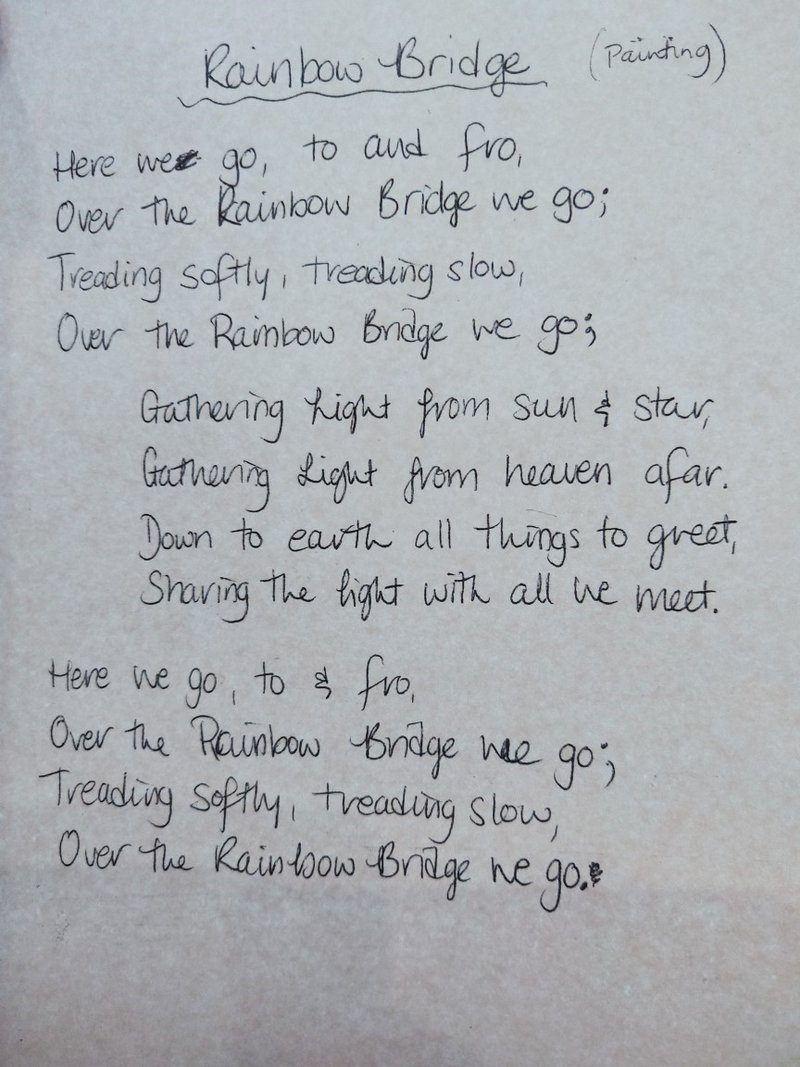 Rainbow Bridge (Painting)
Here we go, to and fro,
Over the Rainbow Bridge we go;
Treading softly, treading slow,
Over the Rainbow Bridge we go;
Gathering Light from sun & star,
Gathering Light from heaven afar.
Down to earth all things to greet,
Sharing the light with all we meet.
Here we go, to & fro,
Over the Rainbow Bridge we go;
Treading softly, treading slow,
Over the Rainbow Bridge we go.